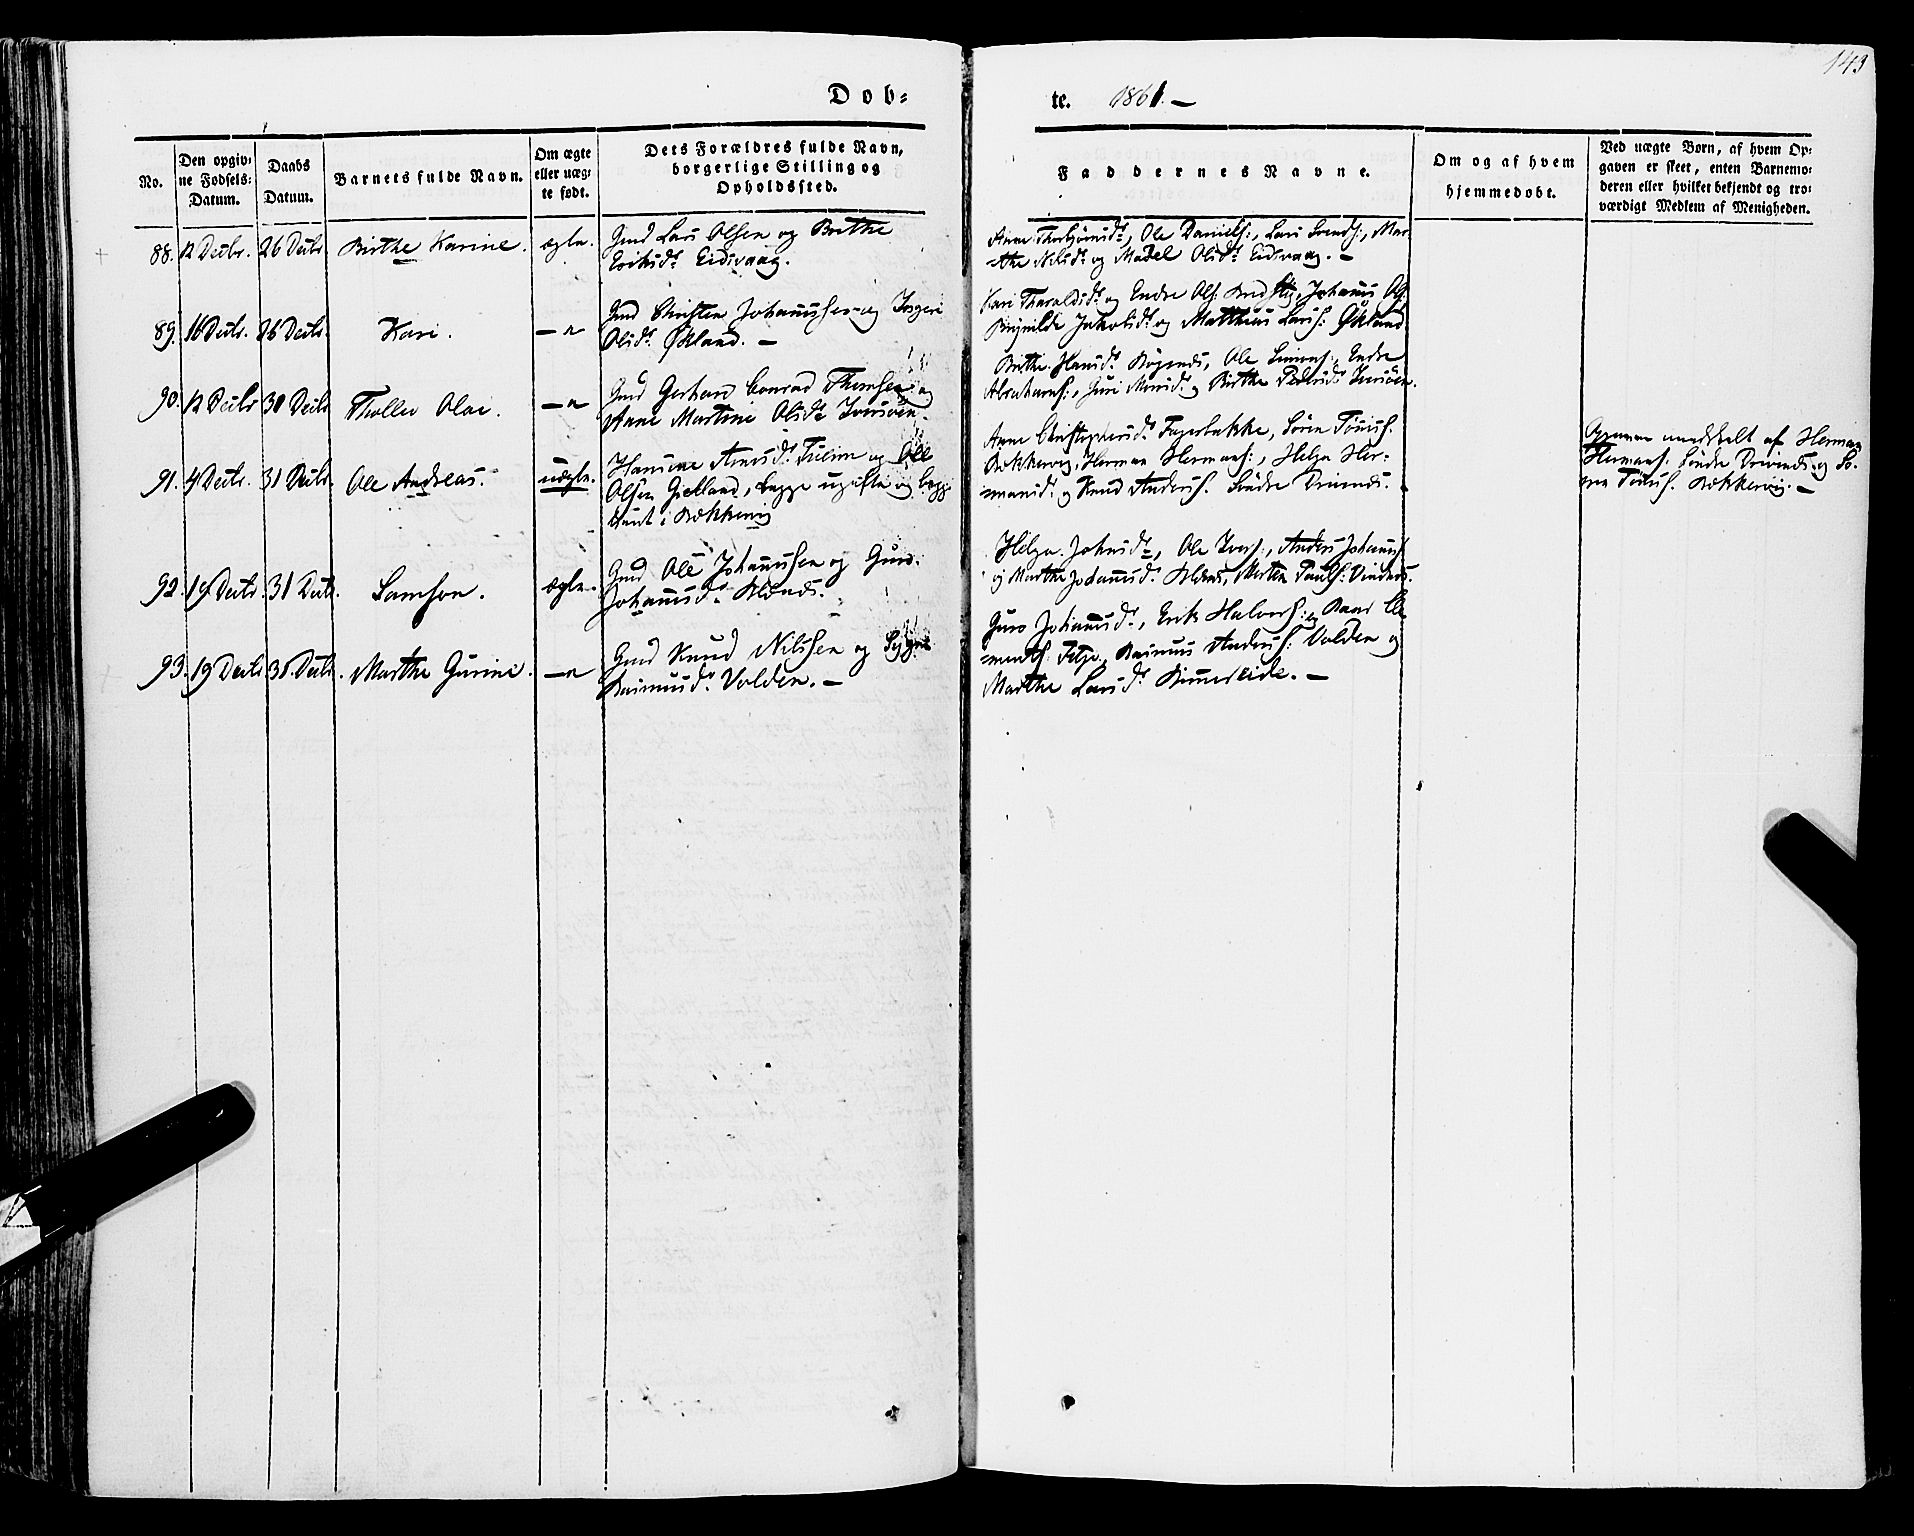 143
Døb-
te. 1861. —
No.
Den opgiv-
ne Fødsels-
Datum.
Daabs
Datum.
Barnets fulde Navn.
Om ægte
eller uæg-
te født.
Dets Forældres fulde Navn,
borgerlige Stilling og
Opholdssted.
Faddernes Navne.
Om og af hvem
hjemmedøbt.
Ved uægte Børn, af hvem Op-
gaven er skeet, enten Barnemo-
deren eller hvilket bekjendt og tro-
værdigt Medlem af Menigheden.
88. 12 Decbr. 26 Decbr. Birthe Karine. ægte.
Gmd Lars Olsen og Berthe
Eriksdr. Eidsvaag.
Anne Thorbjørnsdr, Ole Daniels., Lars Svends., Mar-
the Nilsdr. og Madel Olsdr. Eidsvaag. —
89. 16 Decbr. 26 Decbr. Kari. — "
Gmd Christen Johannessen og Ingeri
Olsdr. Økland. —
Kari Tharaldsdr. og Endre Ols. Johannes Ols.
Jakobsdr. og Matthias Lars. Økland
90. 12 Decbr 30 Decbr Tholler Olai. — "
Gmd Gerhard Conrad Thomsen og
Anne Martine Olsdr.
Berthe Hansdr. Ole Simons., Endre
Abrahams., Guri Monsdr. og Birthe Pedersdr.
91. 4 Decbr. 31 Decbr. Ole Andreas. uægte.
Hansine Arnesdr. og Ole
Olsen Gjelland, begge ugifte og begge
tjent i Bækkervig
Anne Christophersdr. Fagerbakke, Søren Tønnes.
Bækkervig, Herman Hermans., Helga Her-
mansdr. og Knud Anders. Søndre
Opgaven meddeelt af Herman
Hermans. Søndre og Sø-
ren Tønnes. Bækkervig. —
92. 19 Decbr. 31 Decbr. Samson. ægte.
Gmd Ole Johannessen og Guro
Johannesdr.
Helga Johnsdr, Ole Ivers., Anders Johannes.
og Marthe Johannesdr. Morten Pauls.
93. 19 Decbr 31 Decbr. Marthe Gurine. — "
Gmd Knud Nilssen og
Rasmusdr. Volden. —
Guro Johannesdr., Erik Halvors. og Baar Cle-
ments. Fitje, Rasmus Anders. Volden og
Marthe Larsdr. Rimereide. —